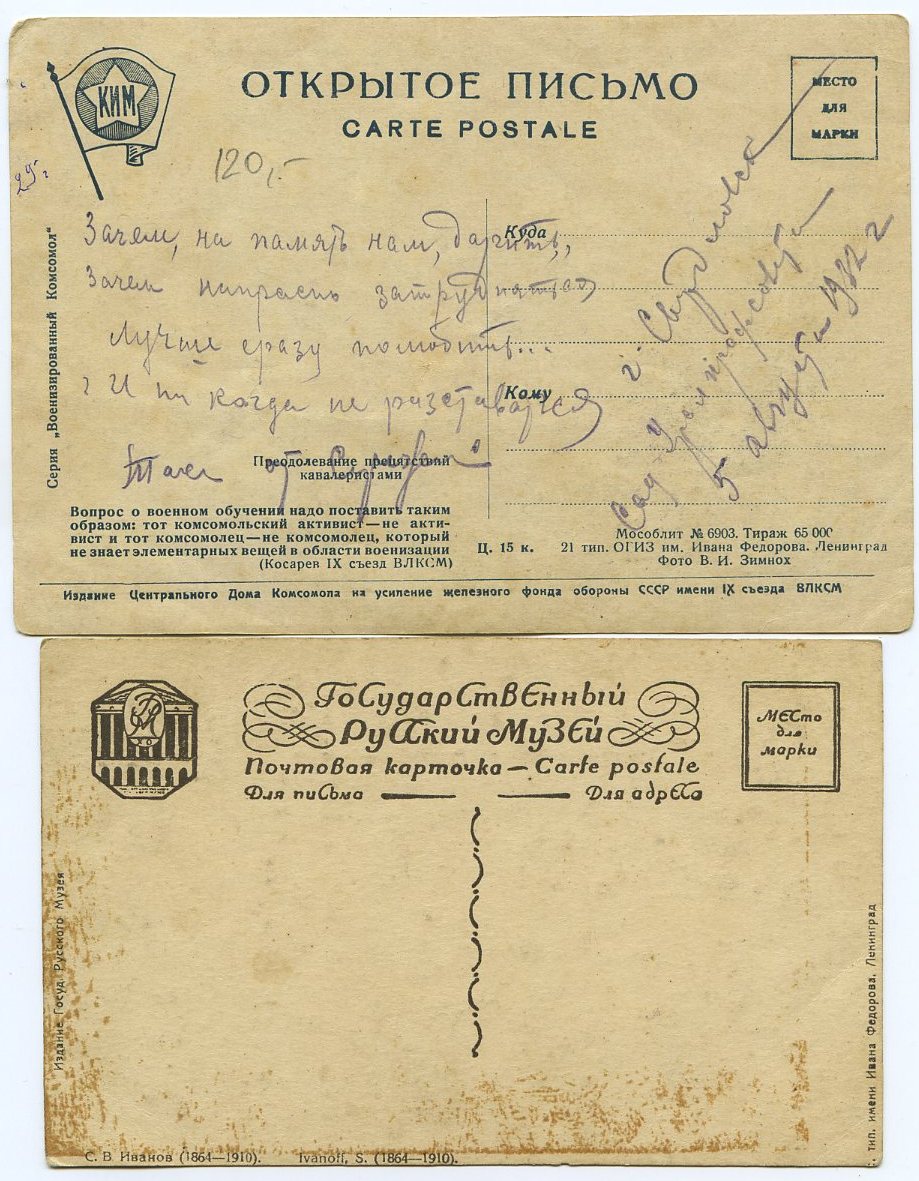 КИМ
ОТКРЫТОЕ ПИСЬМО
CARTE POSTALE
МЕСТО
ДЛЯ
МАРКИ
120,-
Серия „Военизированный Комсомол"
Зачем, на память нам, дарить,,
Зачем напрасно затруднятся
Лучше сразу полюбить...
И ни когда не разставатся
Тасе от
Куда
Кому
г. Свердловск
Сад Уралпрофсовета
5 августа 1932 г
Преодолевание препятствий
кавалеристами
Вопрос о военном обучении надо поставить таким
образом: тот комсомольский активист—не акти-
вист и тот комсомолец—не комсомолец, который
не знает элементарных вещей в области военизации
(Косарев IX съезд ВЛКСМ)
Ц. 15 к.
Мособлит № 6903. Тираж 65 000
21 тип. ОГИЗ им. Ивана Федорова. Ленинград
Фото В. И. Зимнох
Издание Центрального Дома Комсомола на усиление железного фонда обороны СССР имени IX съезда ВЛКСМ
Государственный
Русский Музей
Почтовая карточка — Carte postale
Для письма
Для адреса
Место
для
марки
Издание Госуд. Русского Музея
тип. имени Ивана Федорова, Ленинград
С. В. Иванов (1864—1910). Ivanoff, S. (1864—1910).